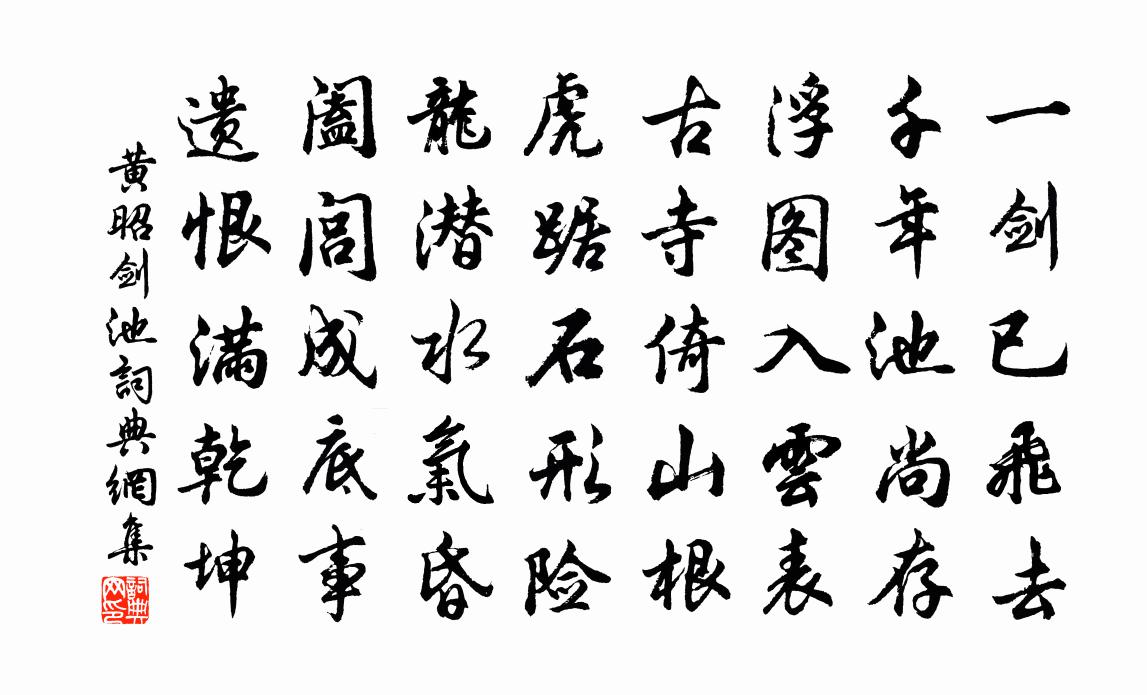 一剑已飛去
千年池尚存
浮图入雲表
古寺倚山根
虎踞石形险
龍潜水氣昏
阖闾成底事
遗恨满乾坤
黄昭剑池詞典網集
詞典